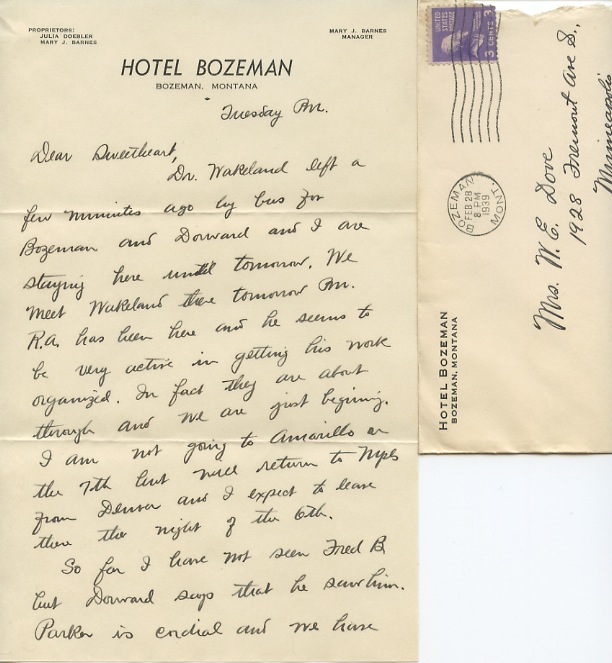 PROPRIETORS:
JULIA DOEBLER
MARY J. BARNES
MARY J. BARNES
MANAGER
HOTEL BOZEMAN
BOZEMAN, MONTANA
Tuesday Pm.
Dear Sweetheart,
Dr. Wakeland left a
few minutes ago by bus for
Bozeman and Dorward and I are
staying here until tomorrow. We
meet Wakeland there tomorrow Pm.
R.A. has been here and he seems to
be very active in getting his work
organized. In fact they are about
through and we are just begining.
I am not going to Amarillo on
the 7th but will return to Mpls
from Denver and I expect to leave
there the night of the 6th.
So far I have not seen Fred B
but Dorward says that he saw him.
Parker is cordial and we have
UNITED STATES POSTAGE
3 CENTS 3
BOZEMAN
FEB 28
8 PM
1939
MONT.
Mrs. W. E. Dove
1928 Fremont Ave S.,
Minneapoli
HOTEL BOZEMAN
BOZEMAN, MONTANA